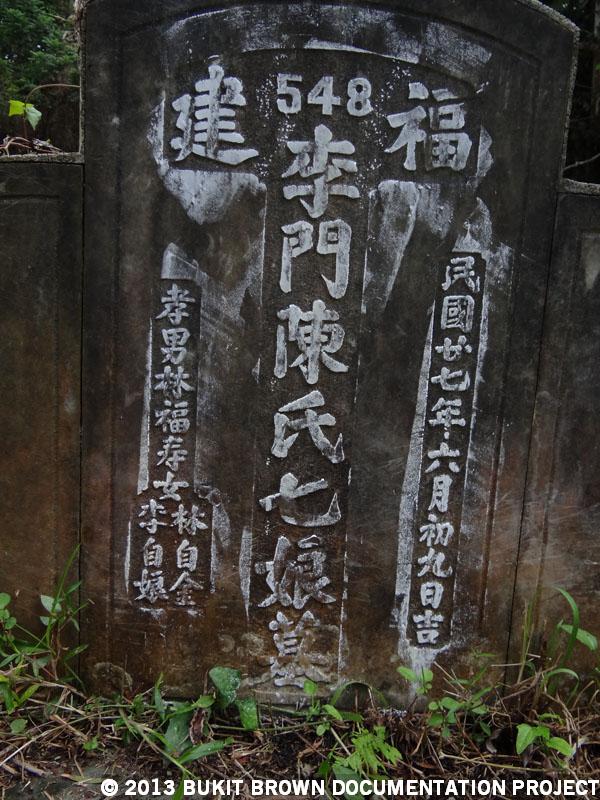 548
福建
民國廿七年六月初九日吉
李門陳氏七娘墓
孝男林福壽女林自金
李自娘
© 2013 BUKIT BROWN DOCUMENTATION PROJECT